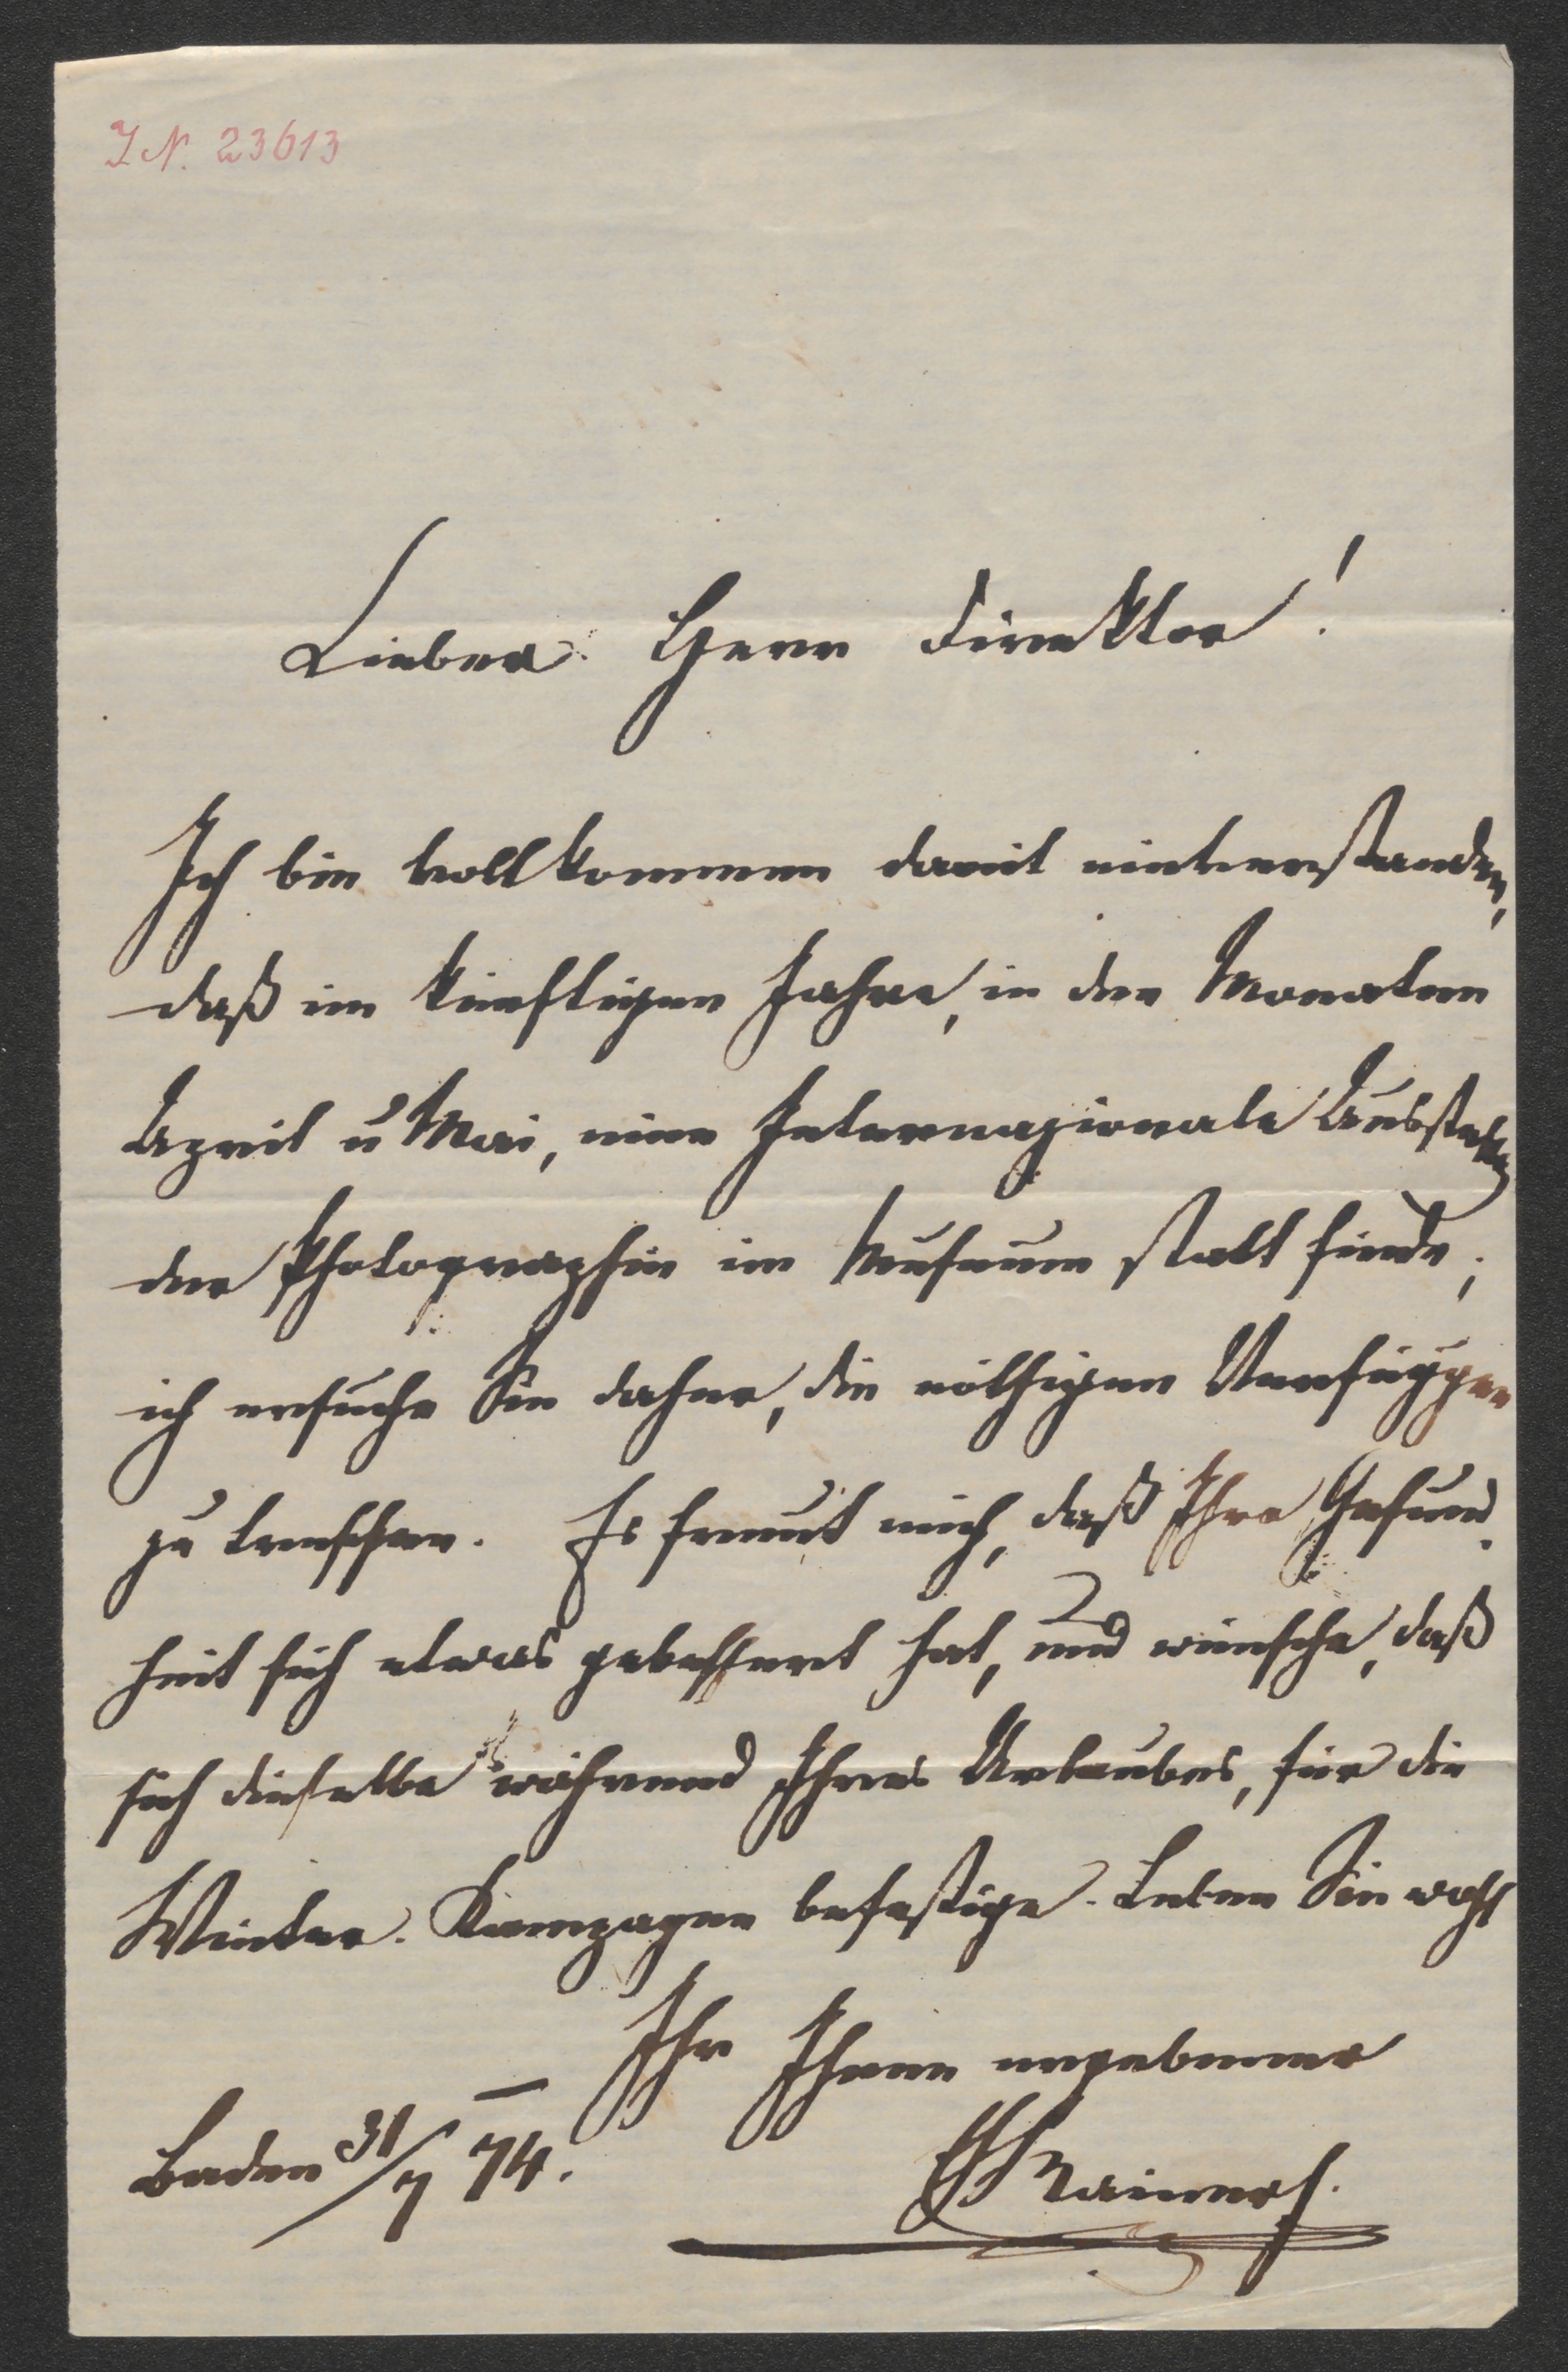 I. N. 23613
Lieber Herr Direktor!
Ich bin vollkommen damit einverstanden,
daß im künftigen Jahre, in den Monaten
April u Mai, eine Internazionale Ausstellg
der Photographie im Museum statt finde;
ich ersuche Sie daher, die nöthigen Verfüggen
zu treffen. Es freut mich, daß Ihre Gesund-
heit sich etwas gebessert hat, und wünsche, daß
sich dieselbe während Ihres Urlaubes, für die
Winter-Kampagne befestige. Leben Sie wohl
Ihr Ihnen ergebener
Baden 31/7 74.
EHRainer.